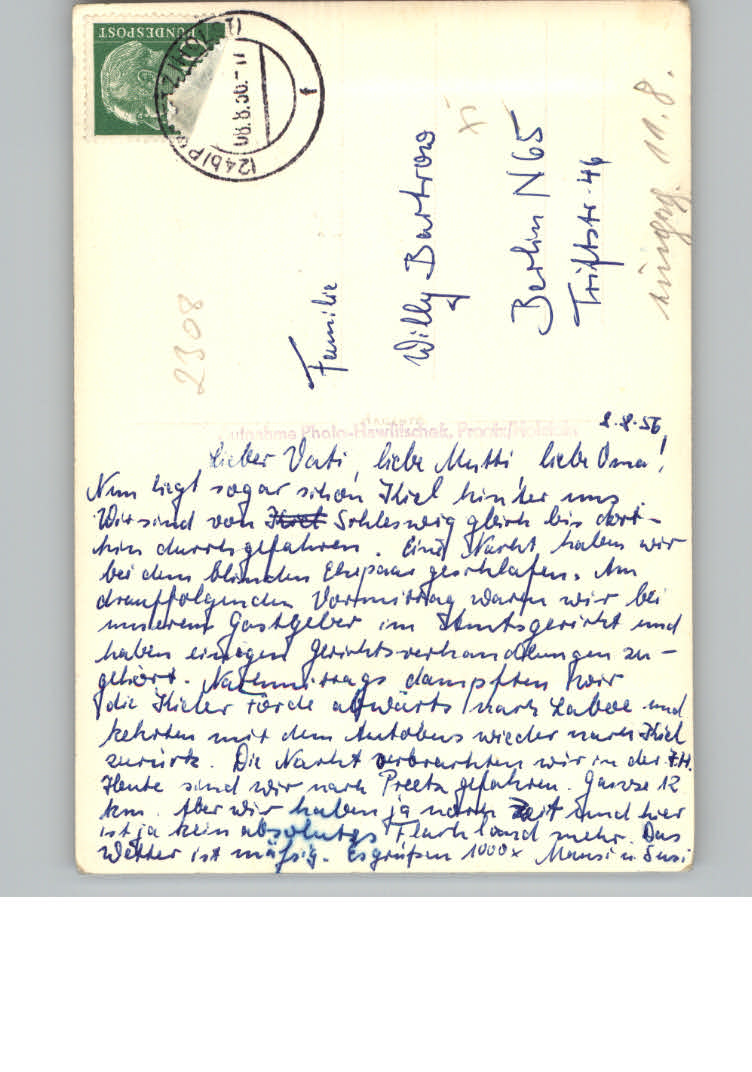 BUNDESPOST
(24b) P
08.8.56.-
f
Familie
Willy Bartrow
Berlin N 65
Triftstr. 46
eingeg. 11.8.
2308
Aufnahme Photo-Hawlitschek, Preetz/Holstein
8.8.56
Lieber Vati, liebe Mutti liebe Oma!
Nun liegt sogar schon Kiel hinter uns.
Wir sind von Kiel Schleswig gleich bis dort-
hin durchgefahren. Eine Nacht haben wir
bei dem blinden Ehepaar geschlafen. Am
drauffolgenden Vormittag waren wir bei
unserem Gastgeber im Amtsgericht und
haben einigen Gerichtsverhandlungen zu-
gehört. Nachmittags dampften wir
die Kieler Förde abwärts nach Laboe und
kehrten mit dem Autobus wieder nach Kiel
zurück. Die Nacht verbrachten wir in der J.H.
Heute sind wir nach Preetz gefahren. Ganze 12
km. Aber wir haben ja noch Zeit und hier
ist ja kein absolutes Flachland mehr. Das
Wetter ist mäßig. Es grüßen 1000x Mausi u. Susi